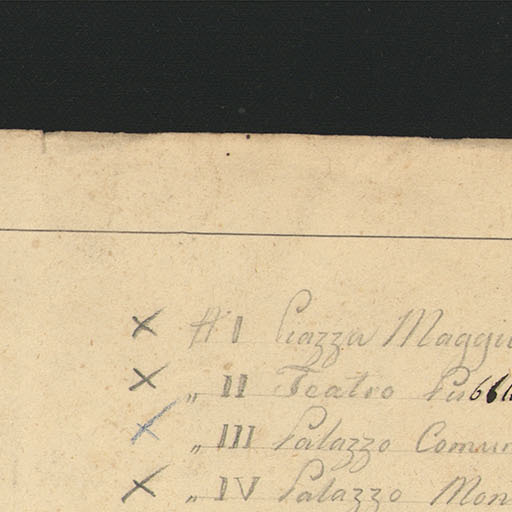 × N° I Piazza Maggio
× „ II Teatro Pubbl
× „ III Palazzo Comun
× „ IV Palazzo Mon